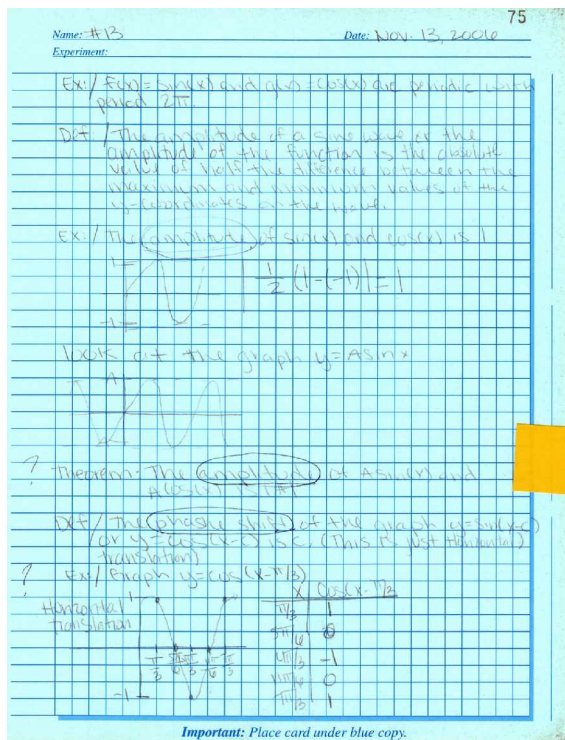 75
Name: #13 Date: Nov. 13, 2006
Experiment:
Ex:/ f(x)=sin(x) and g(x)=cos(x) are periodic with
period 2π.
Def / The amplitude of a sine wave or the
amplitude of the function is the absolute
value of half the difference between the
maximum and minimum values of the
y-coordinates on the wave.
Ex:/ The amplitude of sin(x) and cos(x) is 1
1
1/2 (1-(-1)) = 1
-1
look at the graph y=Asinx
A
? Theorem- The amplitude of Asin(x) and
Acos(x) is |A|
Def/ The phashe shift of the graph y=sin(x-c)
or y=cos(x-c) is c. (This is just Horizontal
translation)
? Ex:/ Graph y=cos(x-π/3)
x cos(x-π/3
Horizontal 1 π/3 1
translation 5π/6 0
4π/3 -1
11π/6 0
-1 7π/3 1
Important: Place card under blue copy.